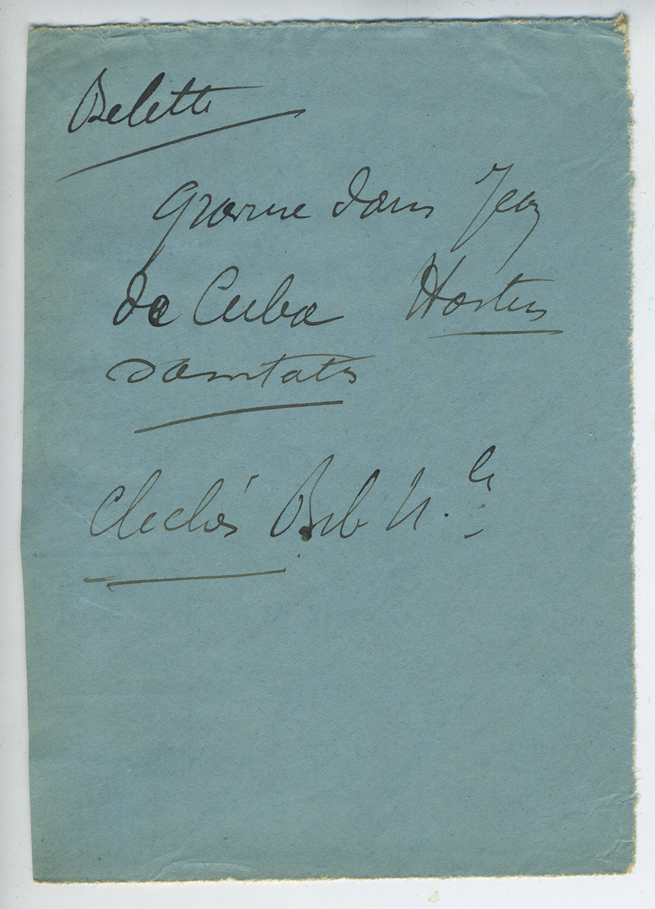 Belette
gravure dans Jean
de Cuba Hortus
sanitatis
clichés Bib Nle